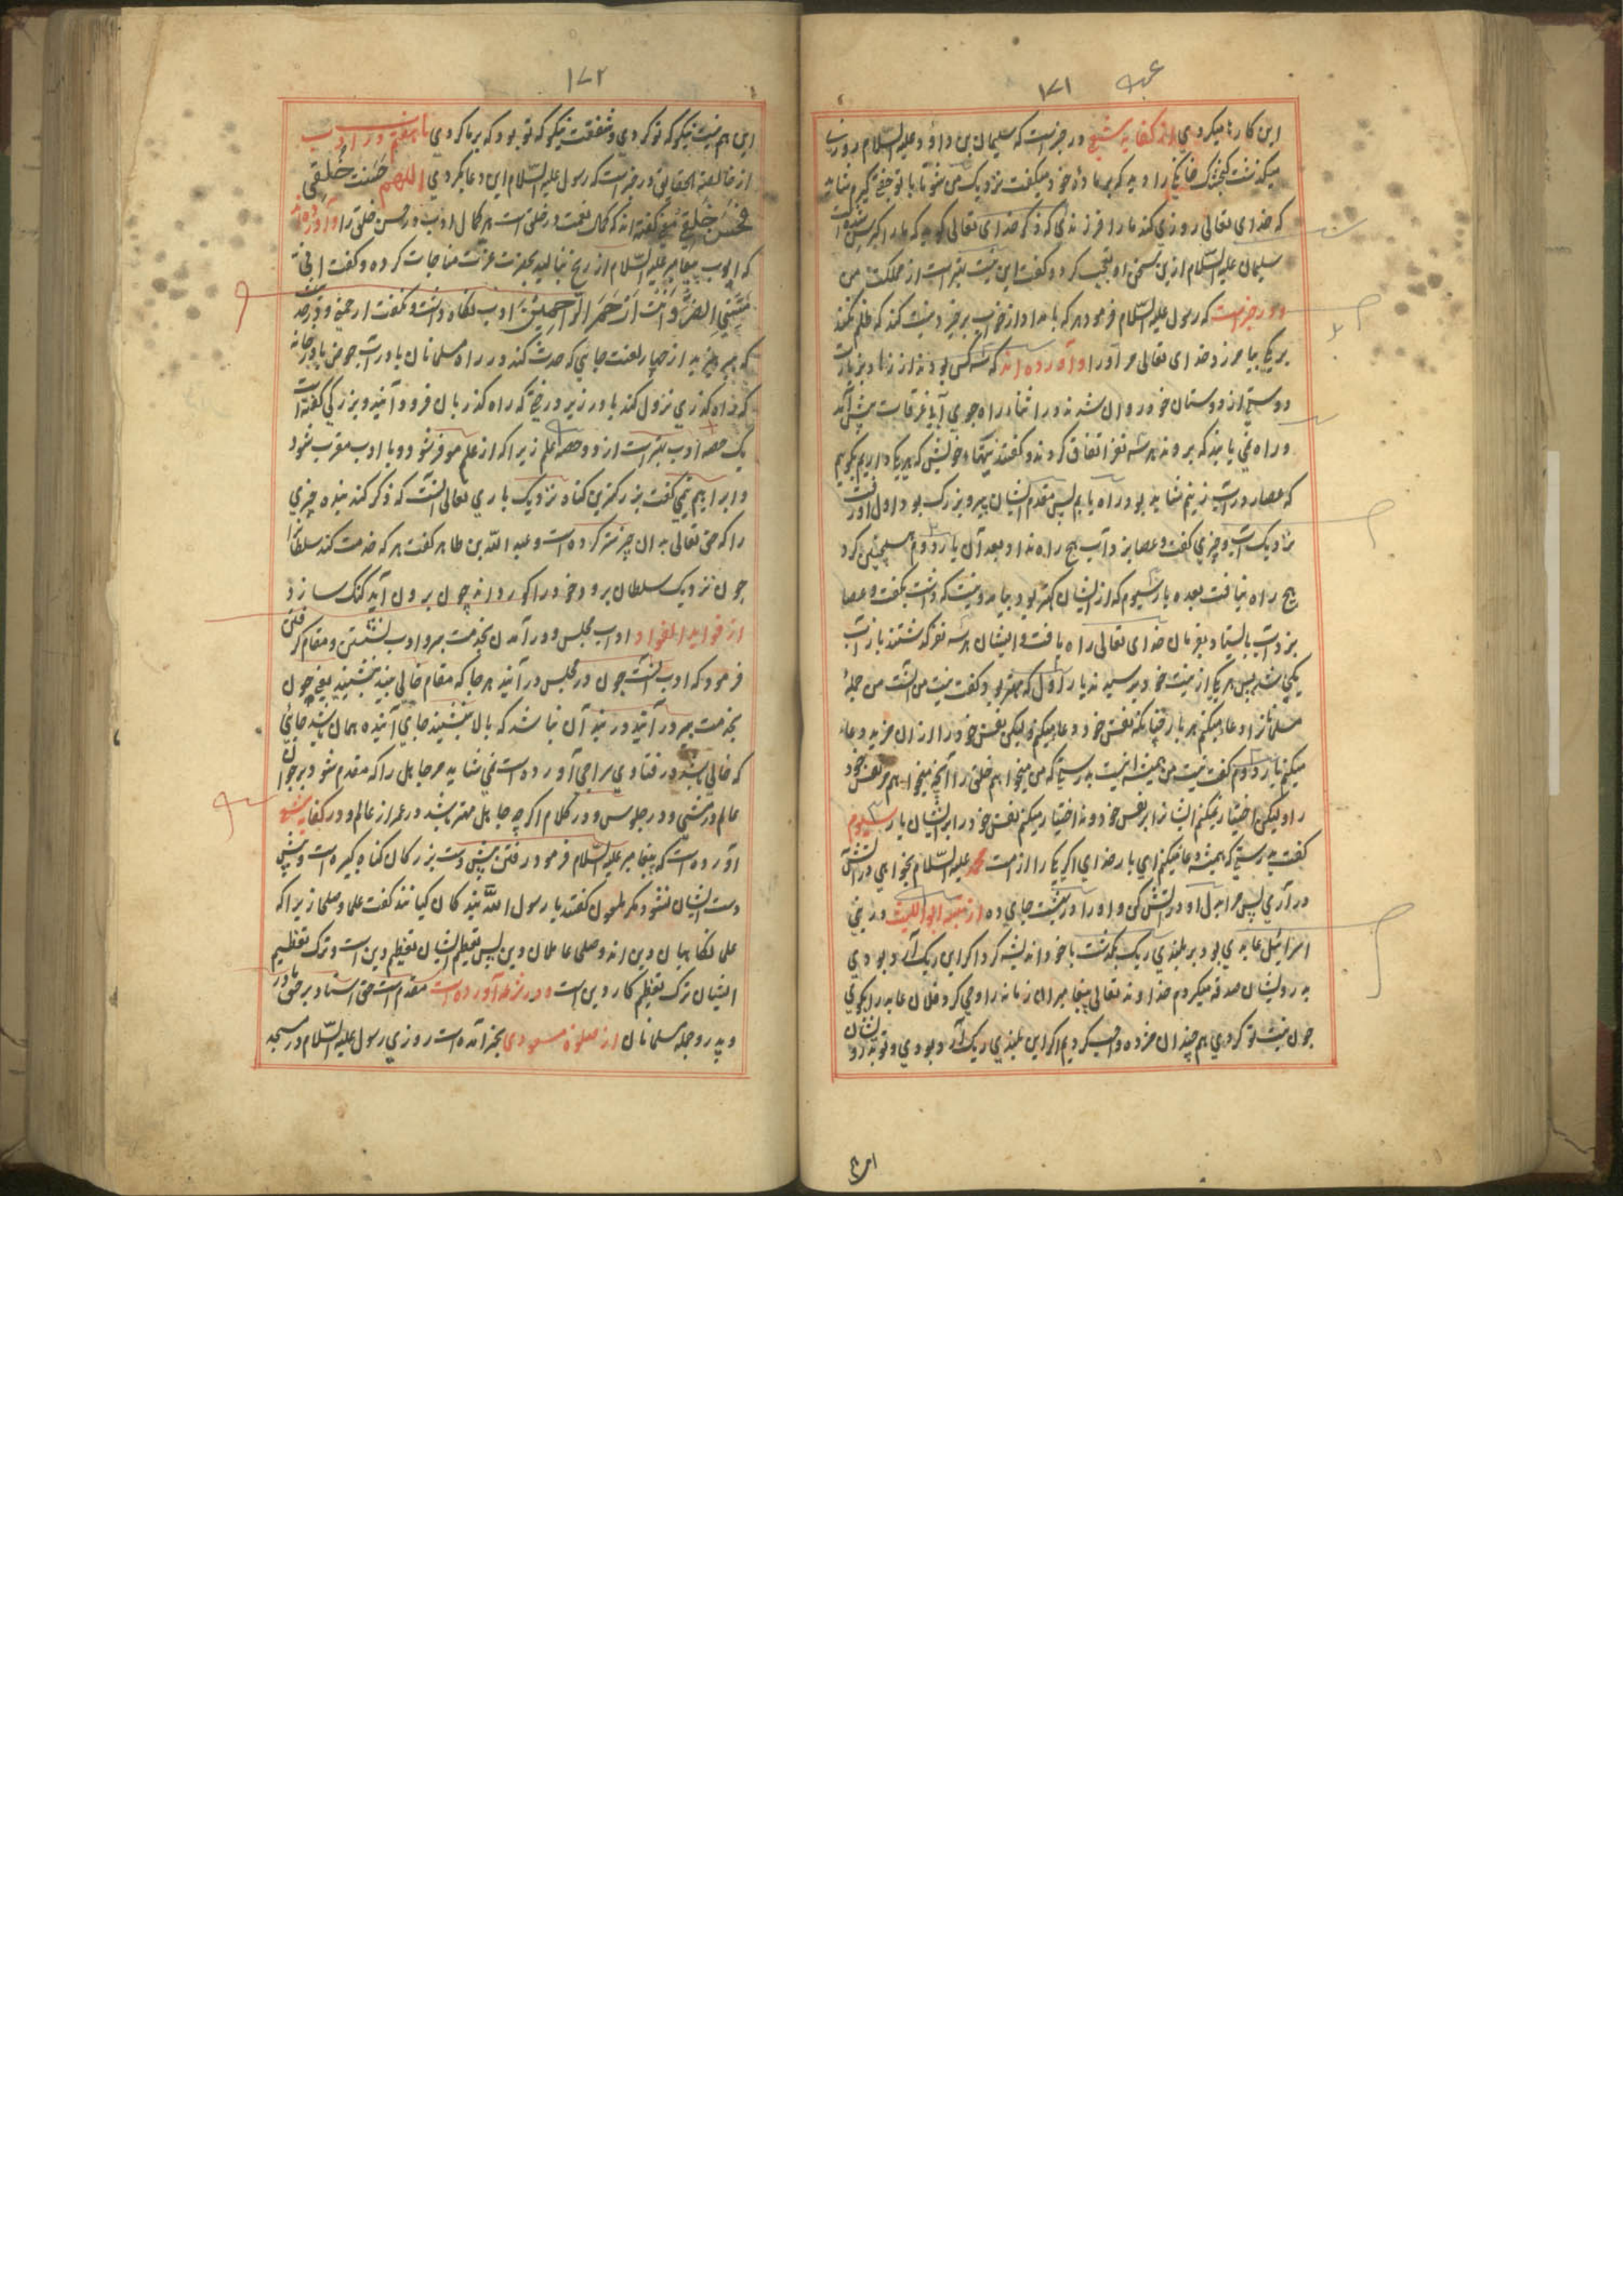 ۱۷۱
این کارها میکردی از کفایه شعبی در خبرست که سلیمان بن داؤد علیه السلام روزی
میگذشت کنجشک خانگی را دید که بر ماده خود میگفت نزدیک من شو تا با تو جفت گیرم شاید
که خدای تعالی روزی کند ما را فرزندی که ذکر خدای تعالی گوید که ما را کبر سن
سلیمان علیه السلام ازین سخن او تعجب کرد و گفت این نیت بهتر است از مملکت من
و در خبرست که رسول علیه السلام فرمود هر که بامداد از خواب برخیزد نیت کند که ظلم نکند
بر یکی بیامرزد خدای تعالی مر او را و آورده اند که سه کس بودند از زهاد بزیارت
دوستی از دوستان خود روان شدند در اثناء راه جوی آبی غرقاب پیش آمد
و راه نمی یابند که بروند هر سه نفر اتفاق کردند و گفتند نیتهاء خویش که هر یکی داریم بگویم
که عصا در آب زنیم شاید بود راه یابیم پس مقدم ایشان پیر و بزرگ بود اول او رفت
نزدیک آب و چیزی گفت و عصا بزد آب هیچ راه نداد بعد آن یار دوم همچنین کرد
هیچ راه نیافت بعده یار سیوم که از ایشان کهتر بود بیامد و نیت که داشت بگفت و عصا
بزد آب بایستاد بفرمان خدای تعالی راه یافت و ایشان هر سه نفر گذشتند باز آب
یکی شد پس هر یکی از نیت خود پرسیدند یار اول که مهتر بود گفت نیت من آنست من جمله
مسلمانان را دعا میکنم هر بار چنانکه نفس خود را دعا میکنم لیکن نفس خود را ارزان خرید دعا
میکنم یار دوم گفت نیت من همیشه اینست بدرستی که من میخواهم خلق را آنچه میخواهم مر نفس خود
را ولیکن اختیار میکنم ایشان را بر نفس خود و نه اختیار میکنم نفس خود را بر ایشان یار سیوم
گفت بدرستی که همیشه دعا میکنم الهی بار خدای اگر یکی را از امت محمد علیه السلام بخواهی در آتش
در آری پس مرا بدل او در آتش کن و او را در بهشت جای ده از تنبیه ابواللیث در بنی
اسرائیل عابدی بود بر بلندی ریک بگذشت با خود اندیشه کرد اگر این ریک آرد بودی
بدرویشان صدقه میکردم خداوند تعالی پیغامبر آن زمانه را وحی کرد فلان عابد را بگوی
چون نیت تو کردی هم چندان مزده و اجر کردیم اگر این بلندی ریک آرد بودی و تو بدرویشان
این هم
۱۷۲
این هم نیت نیکو که تو کردی و شفقت نیکو که تو بود که بر ما کردی باب هفتم در ادب
از خالصة الحقایق در خبر است که رسول علیه السلام این دعا بکردی اللهم حسنت خلقی
فحسن خلقی گفته اند که کمال نعمت در خلق است هر کمال ادب در حسن خلق را و آورده اند
که ایوب پیغامبر علیه السلام از رنج بنالید بحضرت عزت مناجات کرده و گفت انی
مسنی الضر و انت ارحم الراحمین ادب نگاه داشت و نگفت ارحمنی و در خبرست
که بپرهیزید از چهار لعنت جایی که حدث کند در راه مسلمانان یا در آب حوض یا در خانه
که راه گذری نزول کند یا در زیر درختی که راه گذریان فرود آیند و بزرگی گفته است
یک حصه ادب بهتر است از دو حصه علم زیرا که از علم موقر شود و با ادب مقرب شود
و ابراهیم تیمی گفت بزرکترین گناه نزدیک باری تعالی آنست که ذکر کند بنده چیزی
را که حق تعالی بدان چیز ستر کرده است و عبد الله بن طاهر گفت هر که خدمت کند سلطان را
چون نزدیک سلطان برود خود را کور داند چون برون آید گنگ سازد
از فواید الفواد ادب مجلس و در آمدن بخدمت پیر و ادب نشستن و مقام گرفتن
فرمود که ادب آنست چون در مجلس در آیند هر جا که مقام خالی بیند بنشیند یعنی چون
بخدمت پیر در آید در بند آن نباشد که بالا نشیند جای آینده همان باشد جائی
که خالی باشد در فتاوی سراجی آورده است نمی شاید مر جاهل را که مقدم شود بر جوان
عالم در مشی و در جلوس و در کلام اگر چه جاهل مهتر باشد در عمر از عالم و در کفایه شعبی
آورده است که پیغامبر علیه السلام فرمود رفتن پیش دست بزرکان گناه کبیره است و پیش
دست ایشان نشود مگر ملعون گفتند یا رسول الله بزرکان کیانند گفت علما و صلحا زیرا که
علما نگاهبان دین اند و صلحا عاملان دین پس تعظیم ایشان تعظیم دین است و ترک تعظیم
ایشان ترک تعظیم کار دین است و در آورده است مقدم است حق استاد بر حق مادر
و پدر و جمله مسلمانان از صلوة مسعودی بخبر آمده است روزی رسول علیه السلام در مسجد